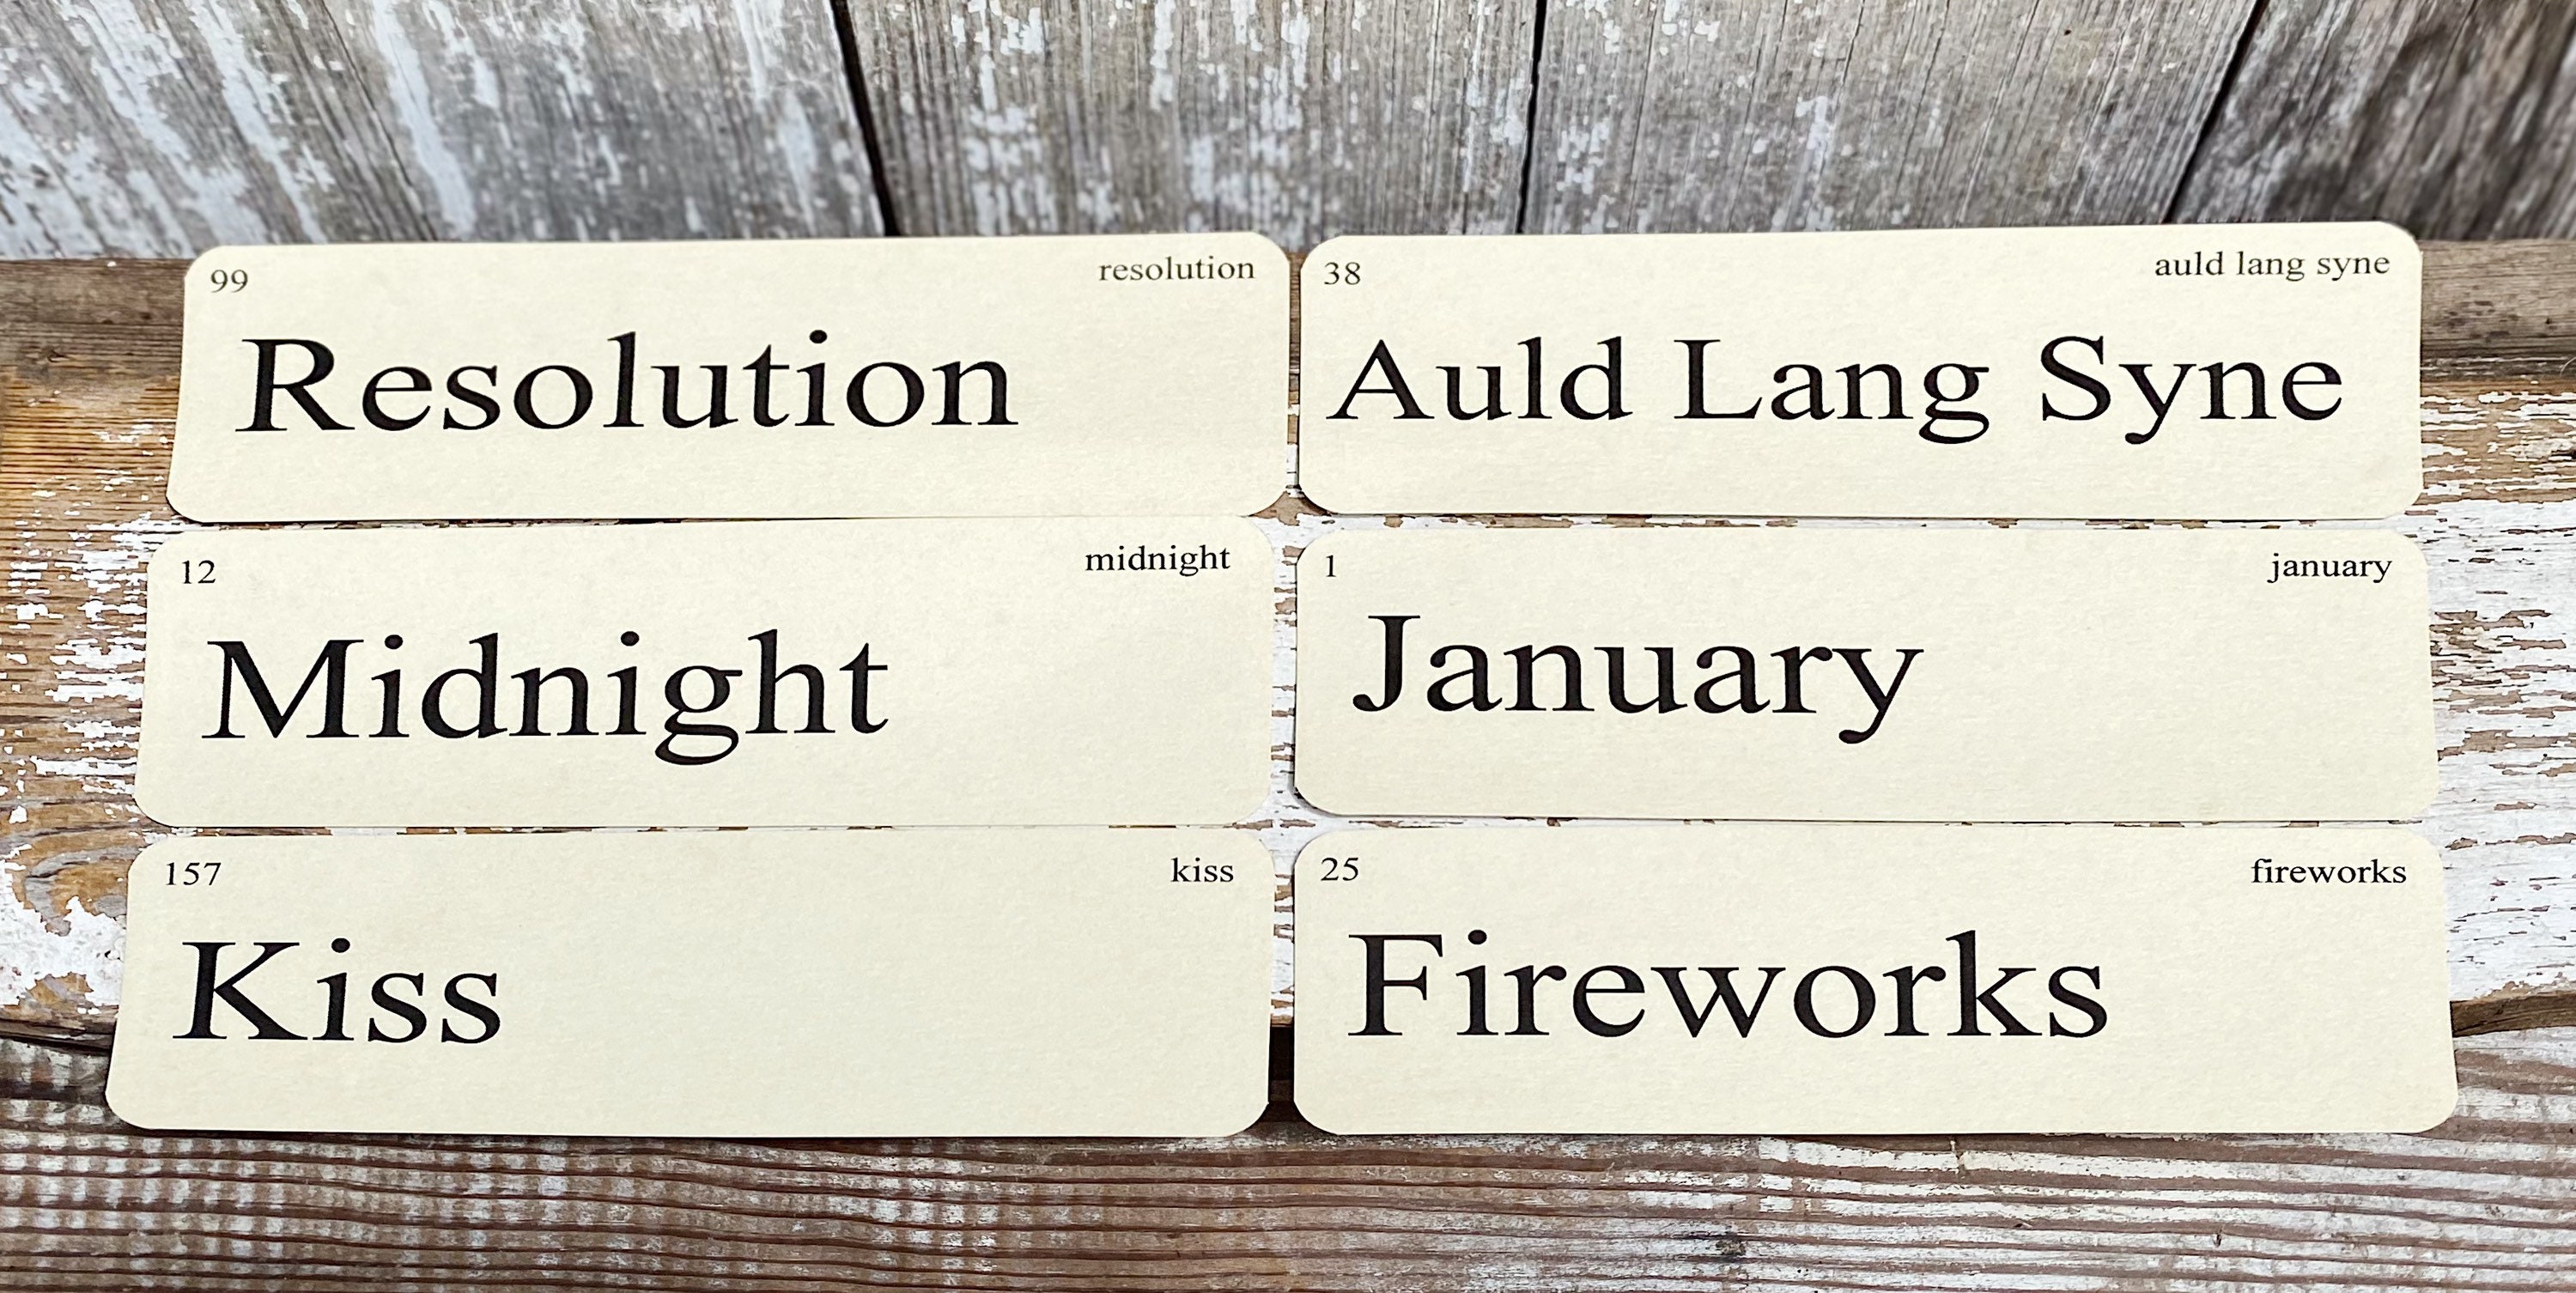 99 resolution
Resolution
38 auld lang syne
Auld Lang Syne
12 midnight
Midnight
1 january
January
157 kiss
Kiss
25 fireworks
Fireworks